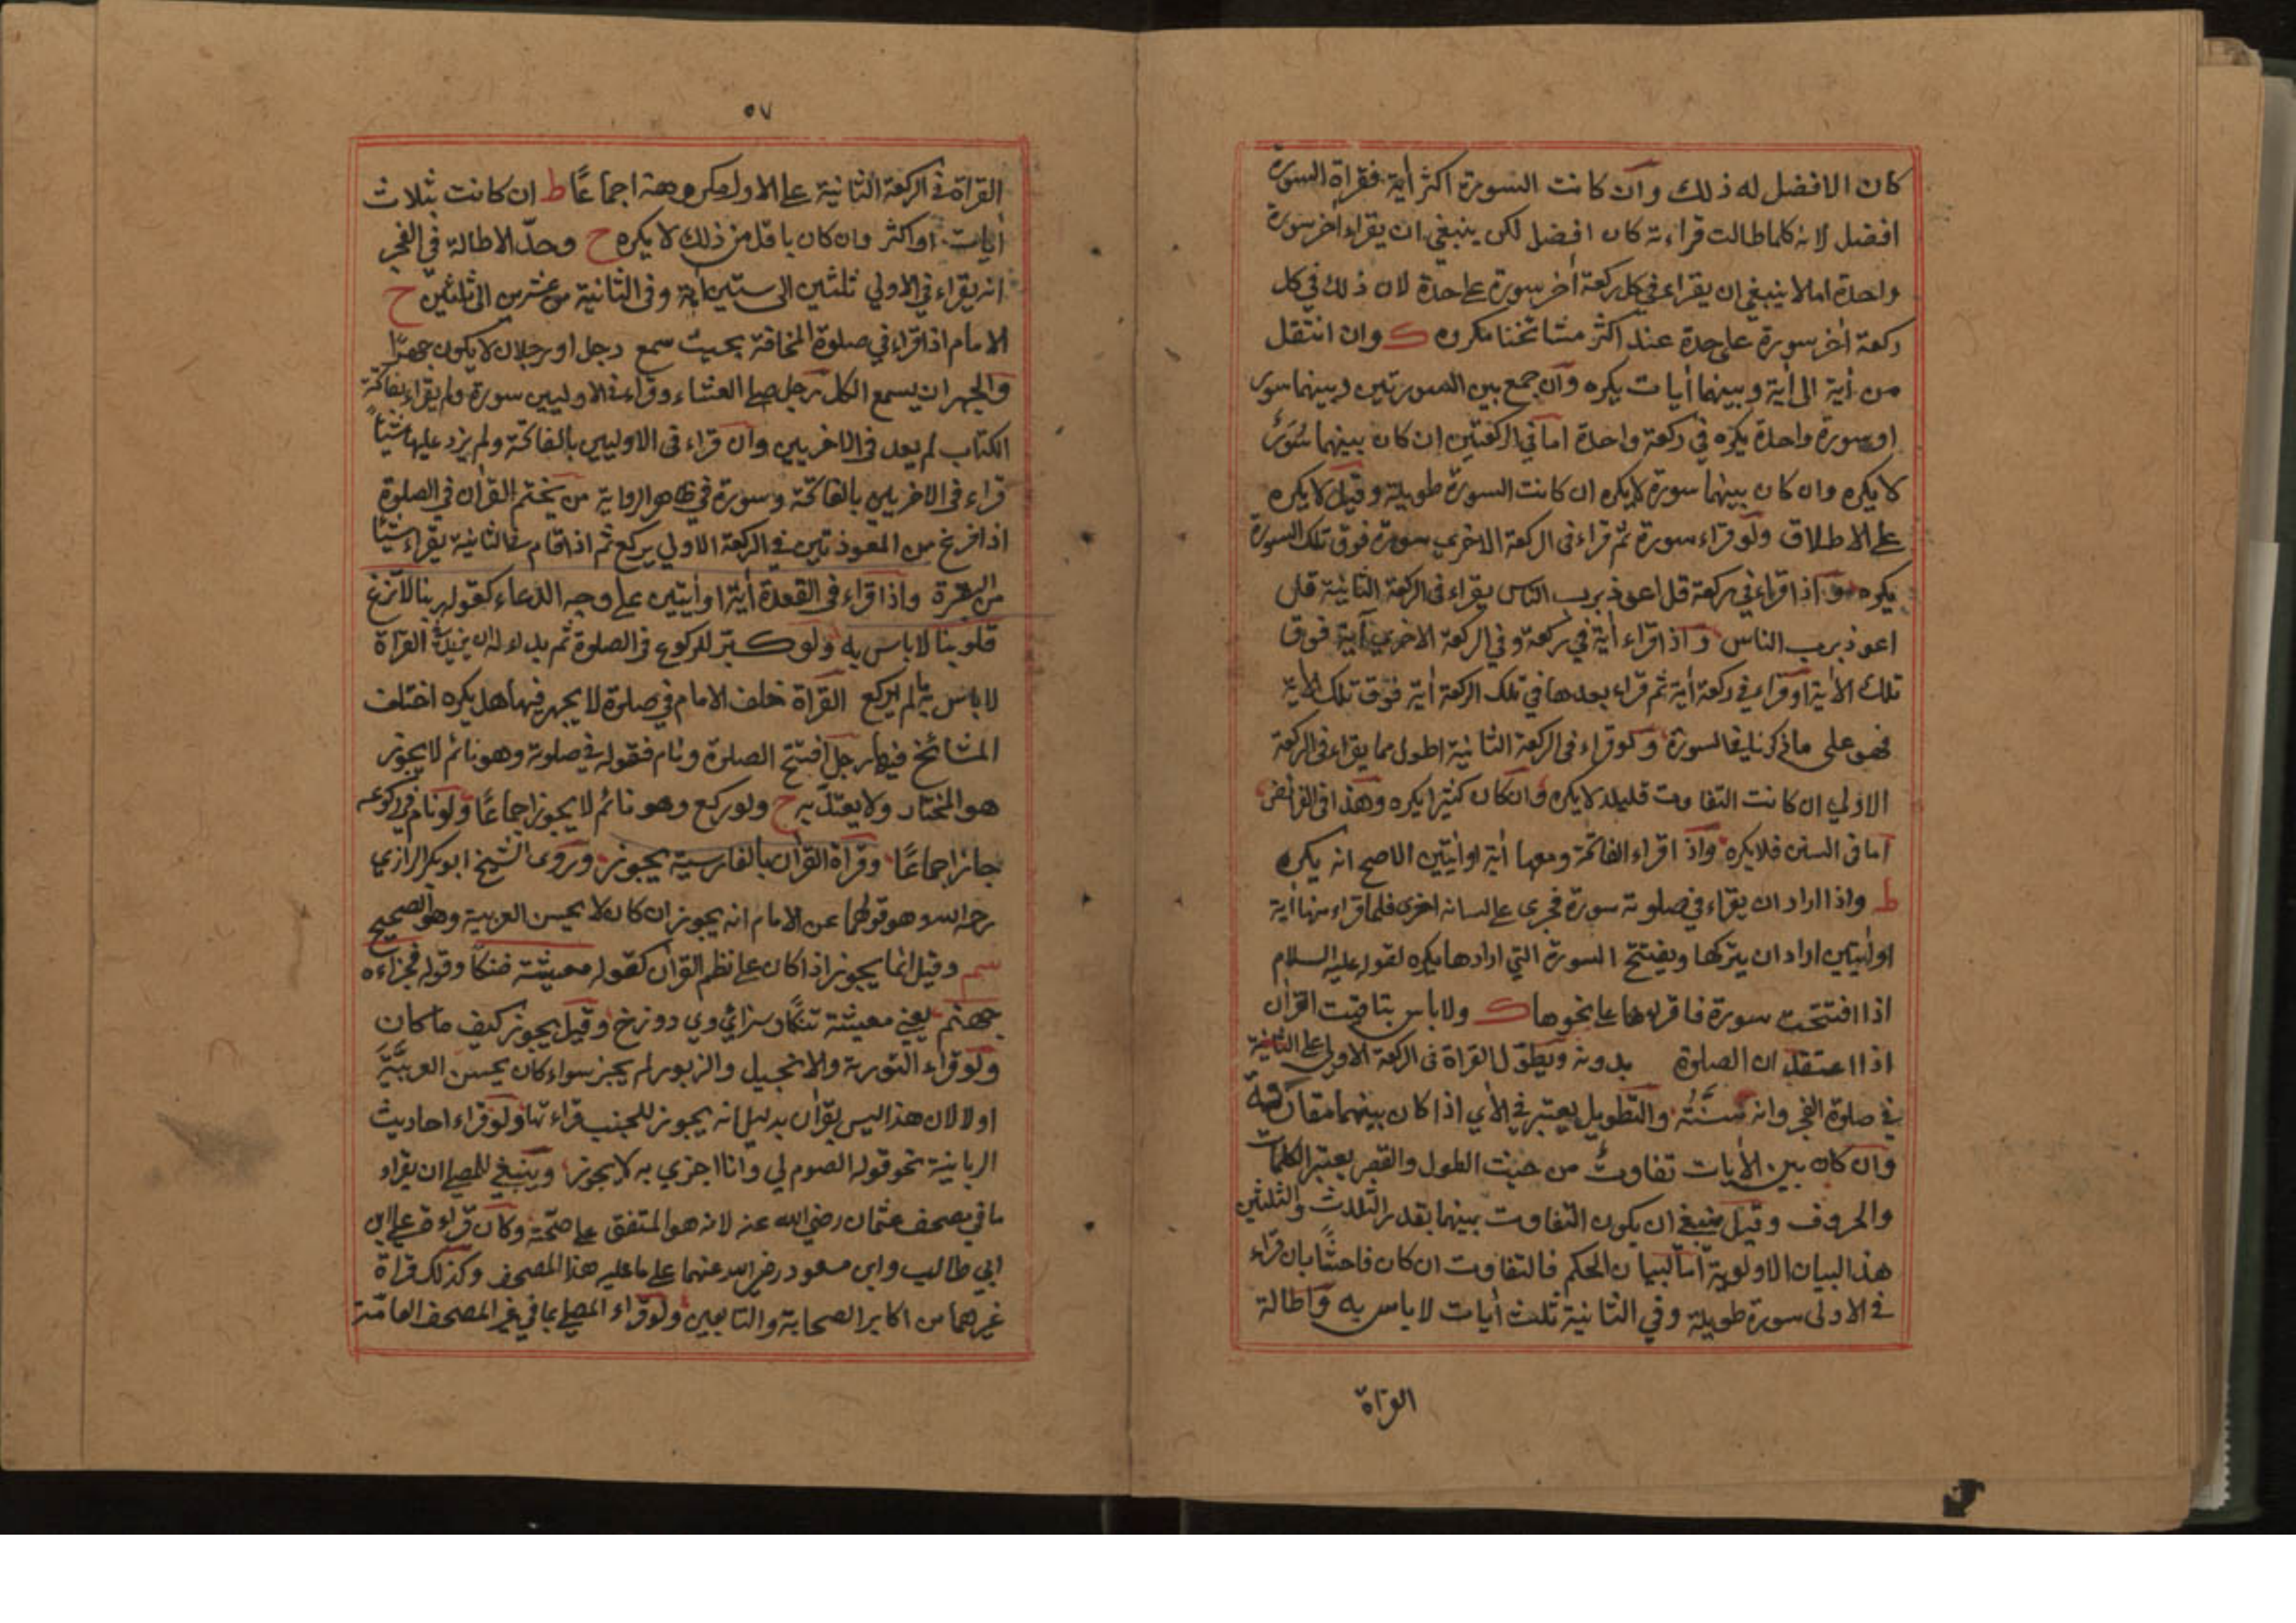 كان الافضل له ذلك وان كانت السورة اكثر أية فقراة السورة
افضل لانه كلما طالت قراءته كان افضل لكن ينبغي ان يقراء اخر سورة
واحدة اما لا ينبغي ان يقراء في كل ركعة أخر سورة على حدة لان ذلك في كل
ركعة أخر سورة على حدة عند اكثر مشائخنا مكروه ك وان انتقل
من أية الى أية وبينهما أيات يكره وان جمع بين السورتين وبينهما سور
او سورة واحدة يكره في ركعة واحدة اما في الركعتين ان كان بينهما سُوَرٌ
لا يكره وان كان بينهما سورة لا يكره ان كانت السورة طويلة وقيل لا يكره
على الاطلاق ولو قراء سورة ثم قراء في الركعة الاخرى سورة فوق تلك السورة
يكره واذا قراء في ركعة قل اعوذ برب الناس يقراء في الركعة الثانية قل
اعوذ برب الناس واذا قراء أية في ركعة وفي الركعة الاخرى أية فوق
تلك الأية او قراء في ركعة أية ثم قراء بعدها في تلك الركعة أية فوق تلك الأية
فهو على ما ذكرنا في السورة ولو قراء في الركعة الثانية اطول مما يقراء في الركعة
الاولي ان كانت التفاوت قليلا لا يكره وان كان كثيرا يكره وهذا في الفرائض
اما في السنن فلا يكره واذا قراء الفاتحة ومعها أية او أيتين الاصح انه يكره
ط واذا اراد ان يقراء في صلوته سورة فجرى على لسانه اخرى فلما قراء منها أية
او أيتين اراد ان يتركها ويفتتح السورة التي ارادها يكره لقوله عليه السلام
اذا افتتحت سورة فاقرأها على نحوها ك ولا باس
اذا اعتقد ان الصلوة بدونه ويطول القراة في الركعة الاولى على الثانية
في صلوة الفجر وانه سُنَّتُه والتطويل يعتبر في الأي اذا كان بينهما مقاربة
وان كان بين الأيات تفاوتٌ من حيث الطول والقصر يعتبر الكلمات
والحروف وقيل ينبغي ان يكون التفاوت بينهما بقدر الثلث والثلثين
هذا البيان الاولوية اما لبيان الحكم فالتفاوت ان كان فاحشًا بان قراء
في الاولى سورة طويلة وفي الثانية ثلث أيات لا باس به واطالة
القراة
٥٧
القراة في الركعة الثانية على الاولى مكروهة اجماعًا ط ان كانت بثلاث
أيات او اكثر وان كان باقل من ذلك لا يكره ح وحدّ الاطالة في الفجر
انه يقراء في الاولي ثلثين الى ستين أية وفي الثانية من عشرين الى ثلثين ح
الامام اذا قراء في صلوة المخافة بحيث سمع رجل او رجلان لا يكون جهرًا
والجهر ان يسمع الكل رجل صلى العشاء وقراء في الاوليين سورة ولم يقراء بفاتحة
الكتاب لم يعد في الاخريين وان قراء في الاوليين بالفاتحة ولم يزد عليها شيئًا
قراء في الاخريين بالفاتحة وسورة في ظاهر الرواية من يختم القرأن في الصلوة
اذا فرغ من المعوذتين في الركعة الاولي يركع ثم اذا قام في الثانية يقراء شيئا
من البقرة واذا قراء في القعدة أية او أيتين على وجه الدعاء كقوله ربنا لا تزغ
قلوبنا لا باس به ولو كبر للركوع في الصلوة ثم بدا له ان يزيد في القراة
لا باس به ما لم يركع القراة خلف الامام في صلوة لا يجهر فيها هل يكره اختلف
المشائخ فيها رجل افتتح الصلوة ونام فقوله في صلوته وهو نائم لا يجوز
هو المختار ولا يعتد به ح ولو ركع وهو نائم لا يجوز اجماعًا ولو نام في ركوعه
جاز اجماعًا وقراة القرأن بالفارسية يجوز وروى الشيخ ابو بكر الرازي
رحمه الله وهو قولهما عن الامام انه يجوز ان كان لا يحسن العربية وهو الصحيح
سم وقيل انما يجوز اذا كان على نظم القرأن كقوله معيشة ضنكا وقوله فجزاءه
جهنم يعني معيشة تنكا وسزاي وي دوزخ وقيل يجوز كيف ما كان
ولو قراء التورية والانجيل والزبور لم يجز سواء كان يحسن العربيَّةَ
او لا لان هذا ليس بقرأن بدليل انه يجوز للجنب قراءتها ولو قراء احاديث
الربانية نحو قوله الصوم لي وانا اجزي به لا يجوز وينبغي للمصلي ان يقراء
ما في مصحف عثمان رضي الله عنه لانه هو المتفق على صحّته وكان قراءة علي ابن
ابي طالب وابن مسعود رضي الله عنهما على ما عليه هذا المصحف وكذلك قراة
غيرهما من اكابر الصحابة والتابعين ولو قراء المصلي بما في غير المصحف العامّة